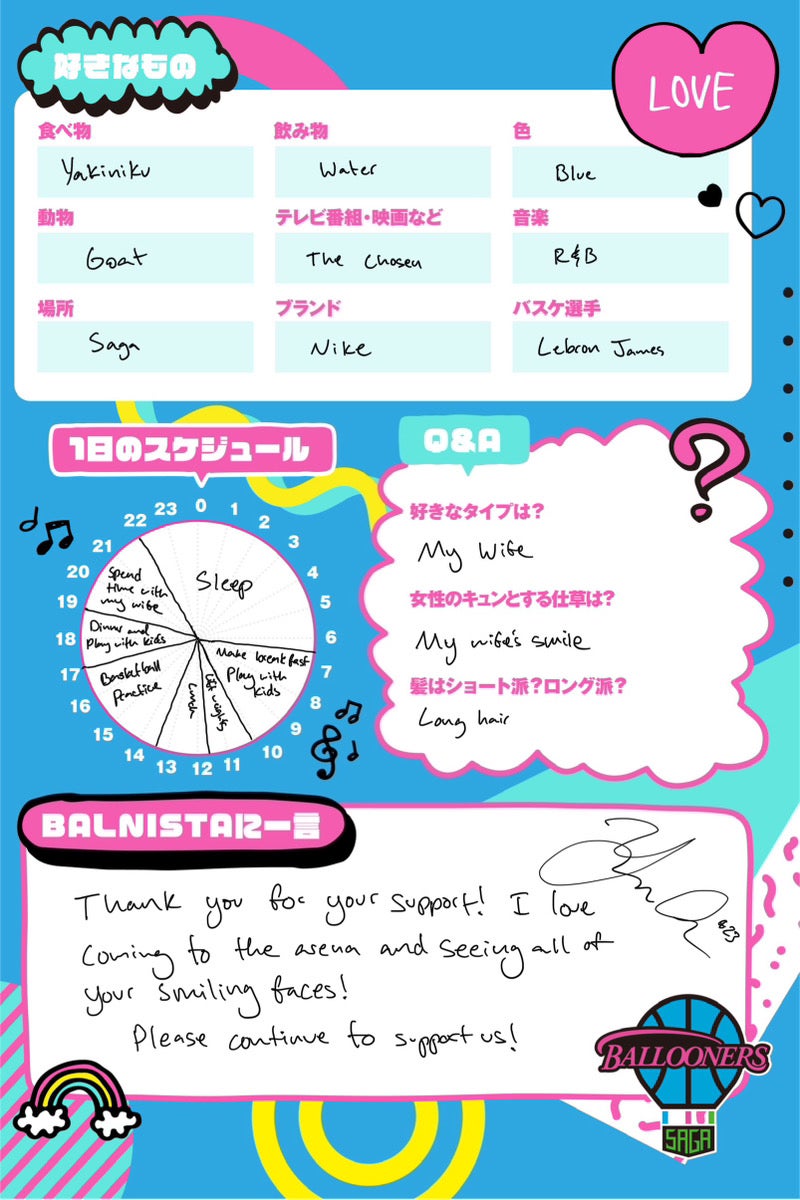 好きなもの
LOVE
食べ物
飲み物
色
Yakiniku
Water
Blue
動物
テレビ番組・映画など
音楽
Goat
The Chosen
R&B
場所
ブランド
バスケ選手
Saga
Nike
Lebron James
1日のスケジュール
0
1
2
3
4
5
6
7
8
9
10
11
12
13
14
15
16
17
18
19
20
21
22
23
Sleep
Make breakfast
Play with
kids
Lift weights
Lunch
Basketball
Practice
Dinner and
Play with kids
Spend
time with
my wife
Q&A
?
好きなタイプは?
My Wife
女性のキュンとする仕草は?
My wife's smile
髪はショート派?ロング派?
Long hair
BALNISTAに一言
Thank you for your support! I love
coming to the arena and seeing all of
your smiling faces!
Please continue to support us!
#23
BALLOONERS
SAGA